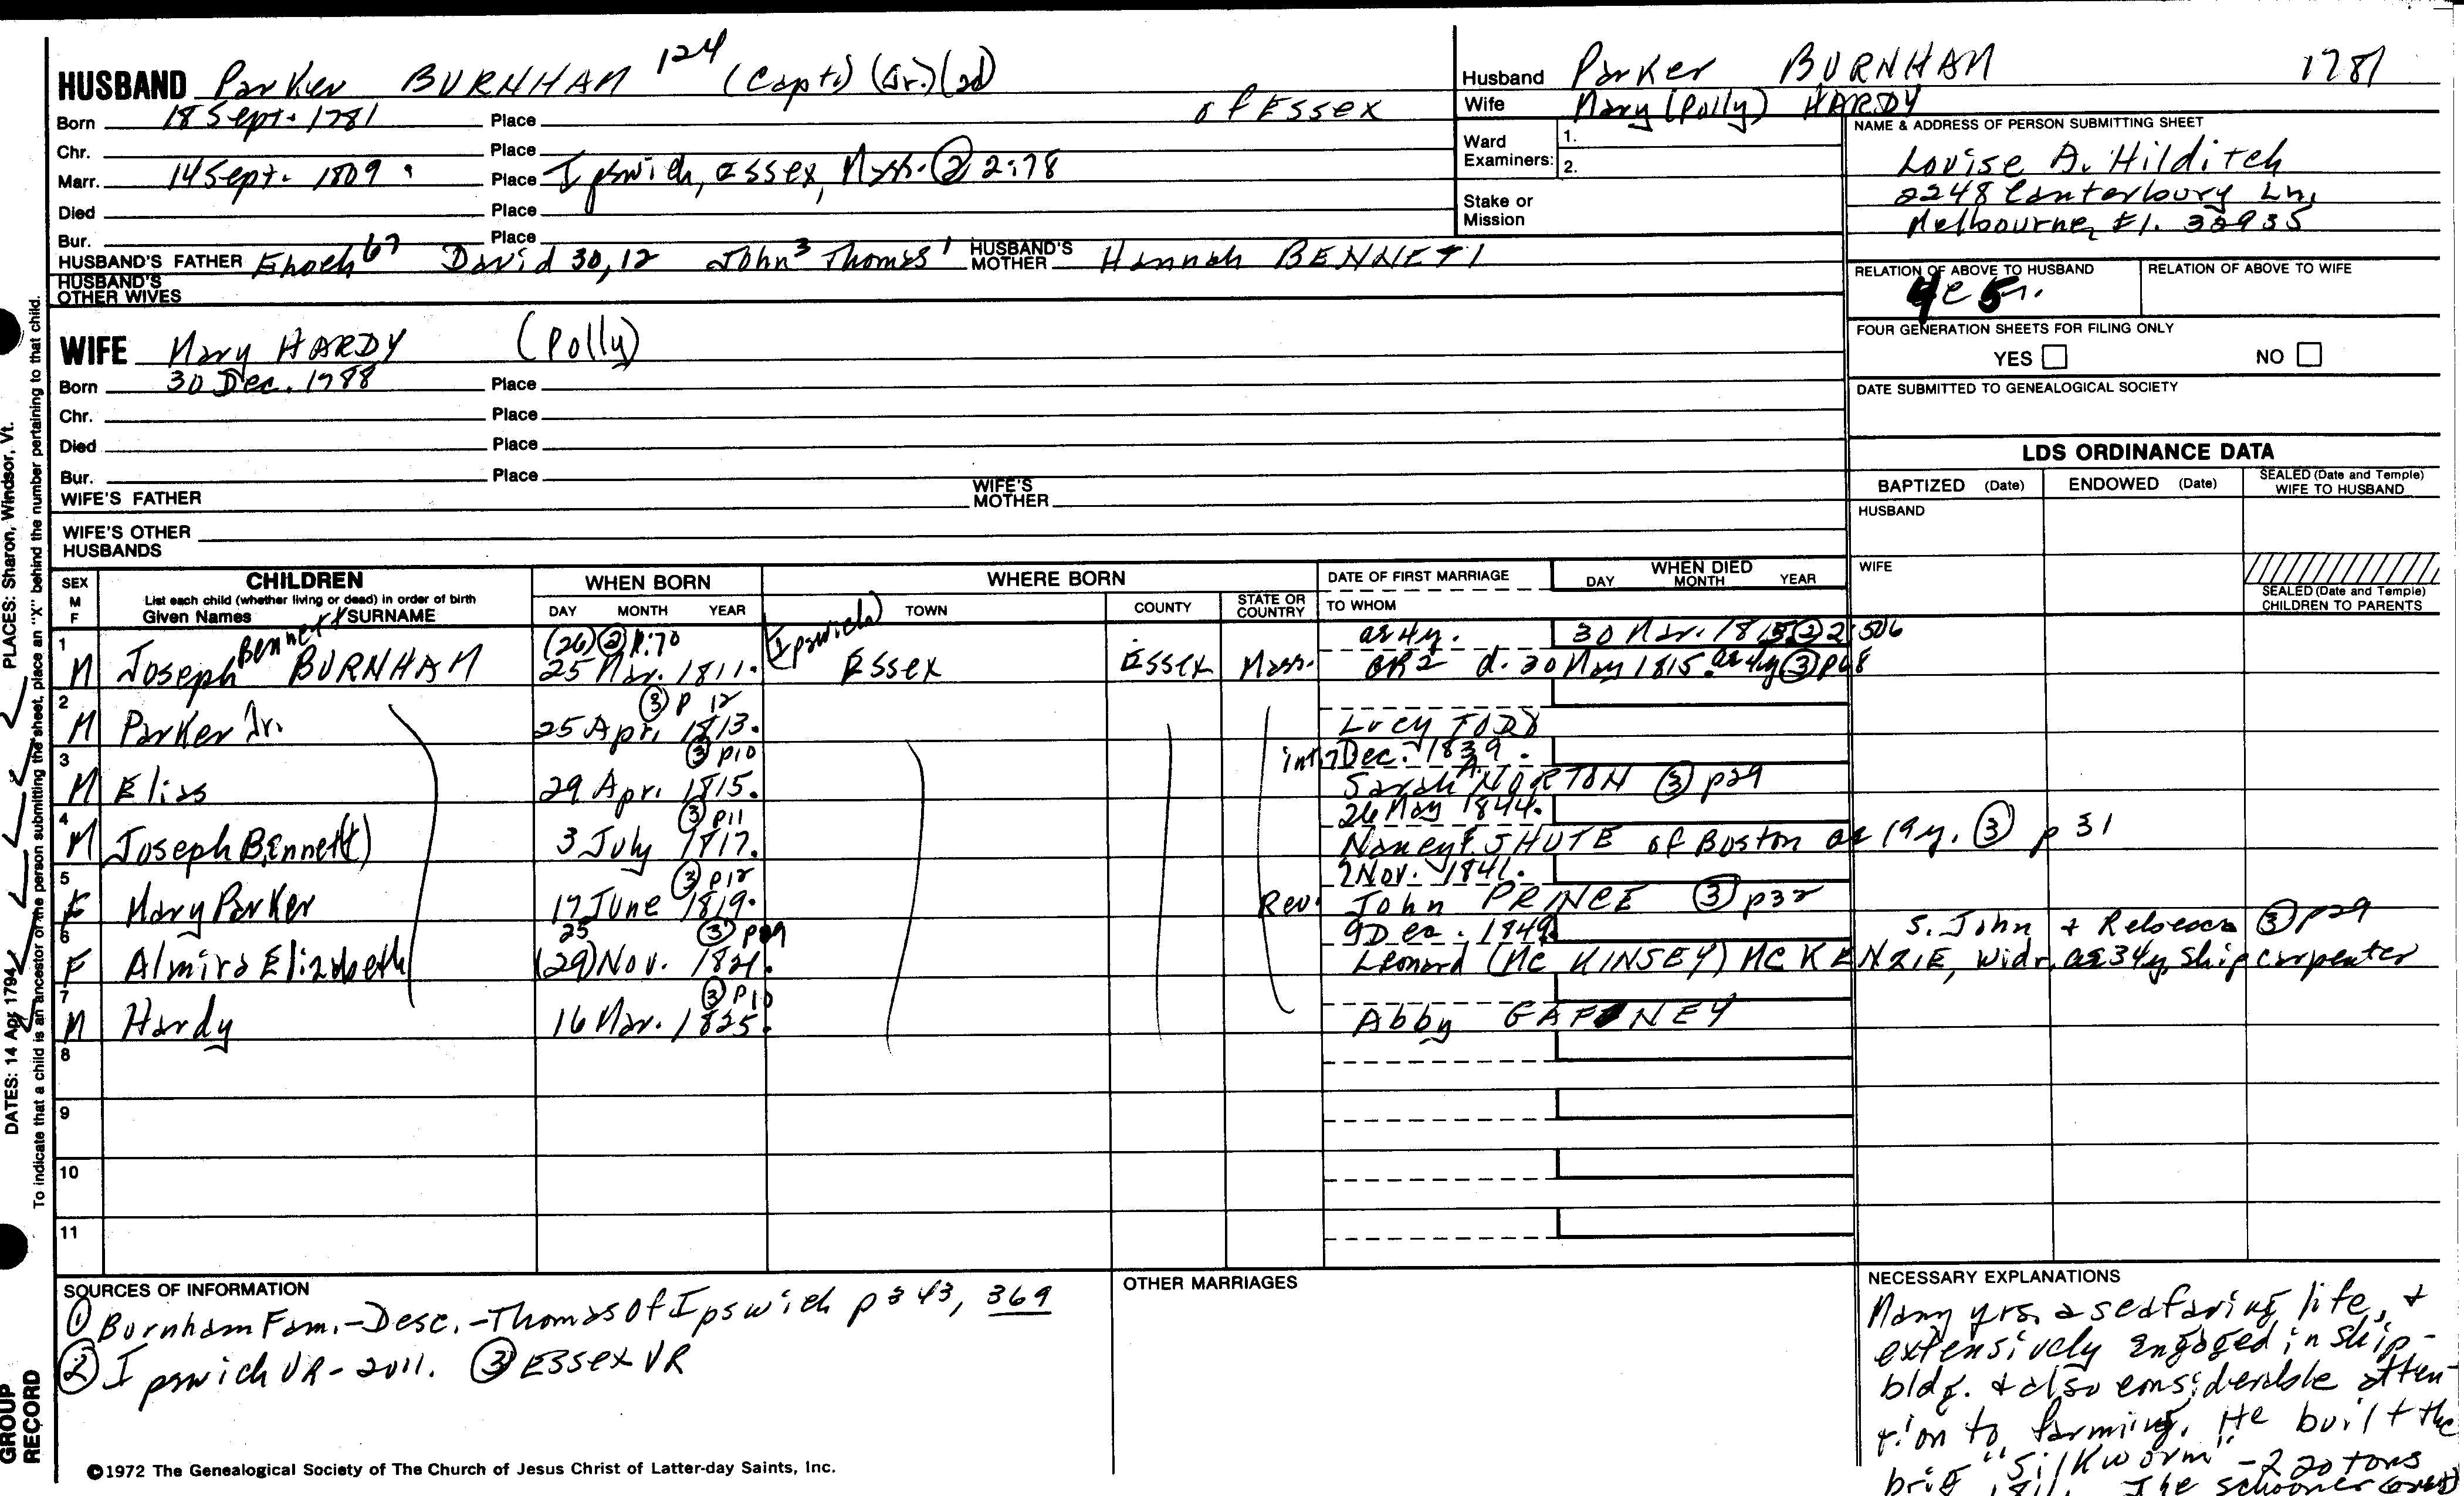 HUSBAND Parker BURNHAM 124 (Capt.) (Jr.) (2d)
Born 18 Sept. 1781 Place of Essex
Chr. Place
Marr. 14 Sept. 1809. Place Ipswich, Essex, Mass. ② 2:78
Died Place
Bur. Place
HUSBAND'S FATHER Enoch 67 David 30,12 John 3 Thomas 1 HUSBAND'S MOTHER Hannah BENNETT
HUSBAND'S OTHER WIVES
Husband Parker BURNHAM 1781
Wife Mary (Polly) HARDY
Ward Examiners: 1.
2.
Stake or Mission
NAME & ADDRESS OF PERSON SUBMITTING SHEET
Louise A. Hilditch
2248 Canterbury Ln,
Melbourne, Fl. 32935
RELATION OF ABOVE TO HUSBAND RELATION OF ABOVE TO WIFE
FOUR GENERATION SHEETS FOR FILING ONLY
YES NO
DATE SUBMITTED TO GENEALOGICAL SOCIETY
WIFE Mary HARDY (Polly)
Born 30 Dec. 1788 Place
Chr. Place
Died Place
Bur. Place
WIFE'S FATHER WIFE'S MOTHER
WIFE'S OTHER HUSBANDS
LDS ORDINANCE DATA
BAPTIZED (Date) ENDOWED (Date) SEALED (Date and Temple) WIFE TO HUSBAND
HUSBAND
WIFE
SEALED (Date and Temple) CHILDREN TO PARENTS
SEX M F
CHILDREN
List each child (whether living or dead) in order of birth
Given Names SURNAME
WHEN BORN
DAY MONTH YEAR
WHERE BORN
TOWN COUNTY STATE OR COUNTRY
DATE OF FIRST MARRIAGE
TO WHOM
WHEN DIED
DAY MONTH YEAR
1 (26) ② 1:70 (Ipswich) ae 4y. 30 Mar. 1815 ② 2:506
M Joseph Bennett BURNHAM 25 Mar. 1811. Essex Essex Mass. GR2 d. 30 May 1815. ae 4y ③ p68
2 ③ p 12
M Parker Jr. 25 Apr. 1813. Lucy TODD
3 ③ p10 int. 7 Dec. 1839.
M Elias 29 Apr. 1815. Sarah A. NORTON ③ p29
4 ③ p11 26 May 1844.
M Joseph B(ennett) 3 July 1817. Nancy F. SHUTE of Boston ae 19y. ③ p 31
5 ③ p12 2 Nov. 1841.
F Mary Parker 17 June 1819. Rev. John PRINCE ③ p32
6 25 ③ p9 9 Dec. 1849. S. John + Rebecca ③ p29
F Almira Elizabeth (29) Nov. 1821. Leonard (McKINSEY) McKENZIE, widr. ae 34y, ship carpenter
7 ③ p10
M Hardy 16 Mar. 1825. Abby GAFFNEY
8
9
10
11
SOURCES OF INFORMATION
① Burnham Fam.-Desc.-Thomas of Ipswich p 343, 369
② Ipswich VR-2011. ③ Essex VR
OTHER MARRIAGES
NECESSARY EXPLANATIONS
Many yrs. a seafaring life, +
extensively engaged in ship-
bldg. + also considerable atten-
tion to farming. He built the
brig "Silkworm" - 220 tons
The schooner (over)
©1972 The Genealogical Society of The Church of Jesus Christ of Latter-day Saints, Inc.
PLACES: Sharon, Windsor, Vt.
DATES: 14 Apr 1794
To indicate that a child is an ancestor of the person submitting the sheet, place an "X" behind the number pertaining to that child.
GROUP
RECORD